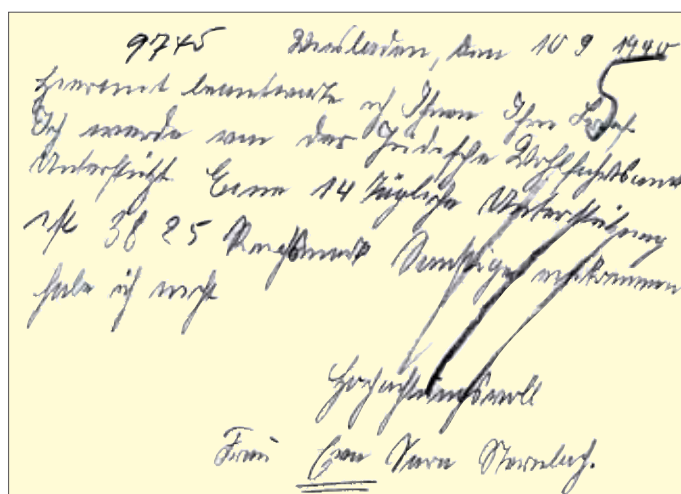 9745 Wiesbaden, den 10 9 1940
Hiermit beantworte ich Ihnen Ihre Brief.
Ich werde von der Jüdische Wohlfahrtsamt
Unterstützt Eine 14 Tägliche Unterstützung
38 25 Reichsmark Sonstiges einkommen
habe ich nicht
Hochachtungsvoll
Frau Sara Sternbach.